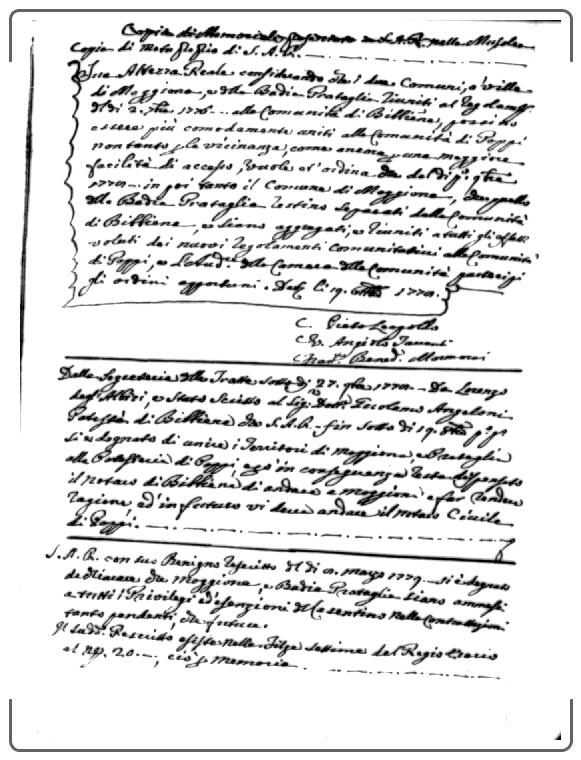 Copia di Memoriale presentato a S.A.R. nella
Copia di Motuproprio di S.A.R.
Sua Altezza Reale considerando che i due Comuni, o ville
di Moggiona, e della Badia Prataglia riuniti al Regolam.
del dì 2. 7bre 1776. alla Comunità di Bibbiena, possino
essere più comodamente uniti alla Comunità di Poppi
non tanto p la vicinanza, come ancora p una maggiore
facilità di accesso, Vuole et ordina che del dì p.º 9bre
in poi tanto il Comune di Moggiona, che quello
della Badia Prataglia restino separati dalla Comunità
di Bibbiena, e siano aggregati, e riuniti a tutti gli effetti
voluti dai nuovi regolamenti comunitativi alla Comunità
di Poppi, e della Camera delle Comunità partecipi
gli ordini opportuni. Dat. li 19. Ottbre
C. Pietro Leopoldo
C. V. Angiolo Tavanti
C. Benedº Mormorai
Dalla Segreteria delle Tratte sotto dì 27. 9bre Da Lorenzo
degl'Albizi, è stato scritto al Sig.re Dott. Angeloni
Potestà di Bibbiena che S.A.R. fin sotto dì 19. 8bre
si è degnato di unire i Territori di Moggiona, e Prataglia
alla Potesteria di Poppi, e in conseguenza resta dispensato
il notaro di Bibbiena di andare a Moggiona a far rendere
ragione, ed in futuro vi deve andare il notaro Civile
di Poppi.
S.A.R. con suo Benigno Rescritto del dì marzo 1779. si è degnato
dichiarare che Moggiona, e Badia Prataglia siano ammessi
a tutti i Privilegi ed esenzioni del Casentino nelle Contrattazioni
tanto pendenti, che future.
Il sudd. Rescritto esiste nella Filza settima del Regio
al nº. 20. ciò p memoria